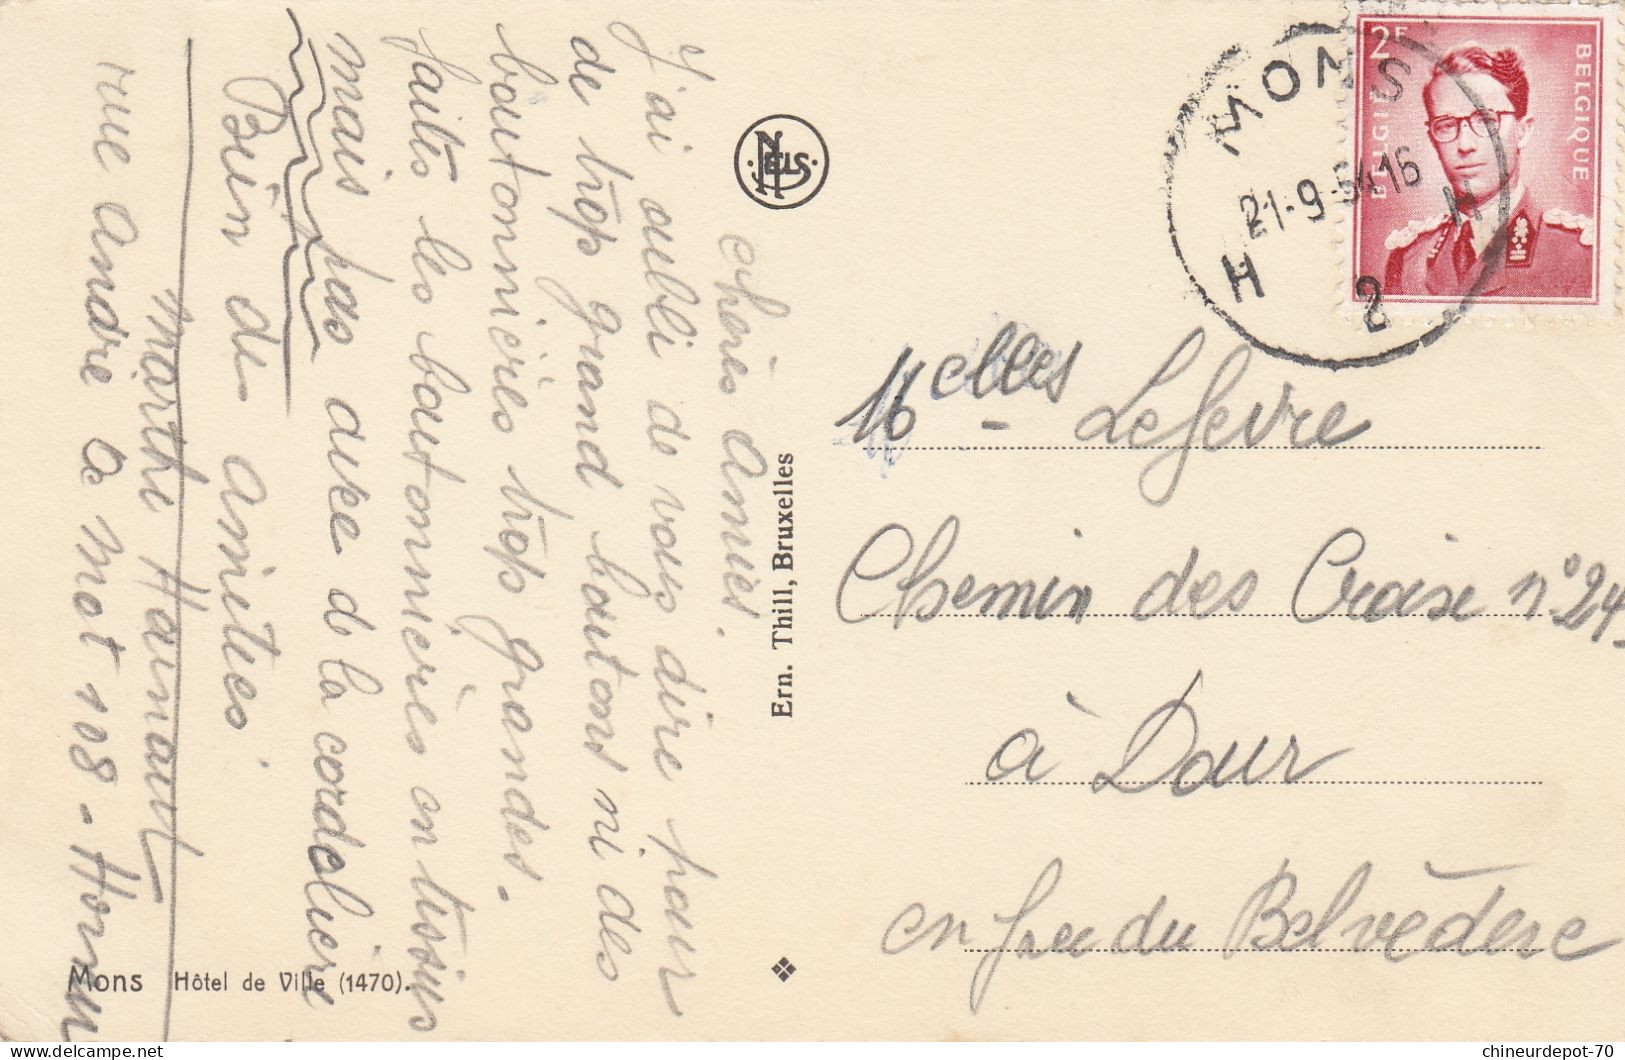 chères Amies.
J'ai oubli de vous dire pour
de trop grand boutons ni des
boutonnières trop grandes.
faites les boutonnières en tissus
mais pas avec d la cordelière
Bien du amitiés
Marthe Hainaut
rue André à Mot 108 - Hornu
Mons Hôtel de Ville (1470).
NELS
Ern. Thill, Bruxelles
2F
BELGIE
BELGIQUE
MONS
21-9-54 16
H 2 H
Melles Lefevre
Chemin des Croix n° 24
à Dour
en face du Belvédère
chineurdepot-70